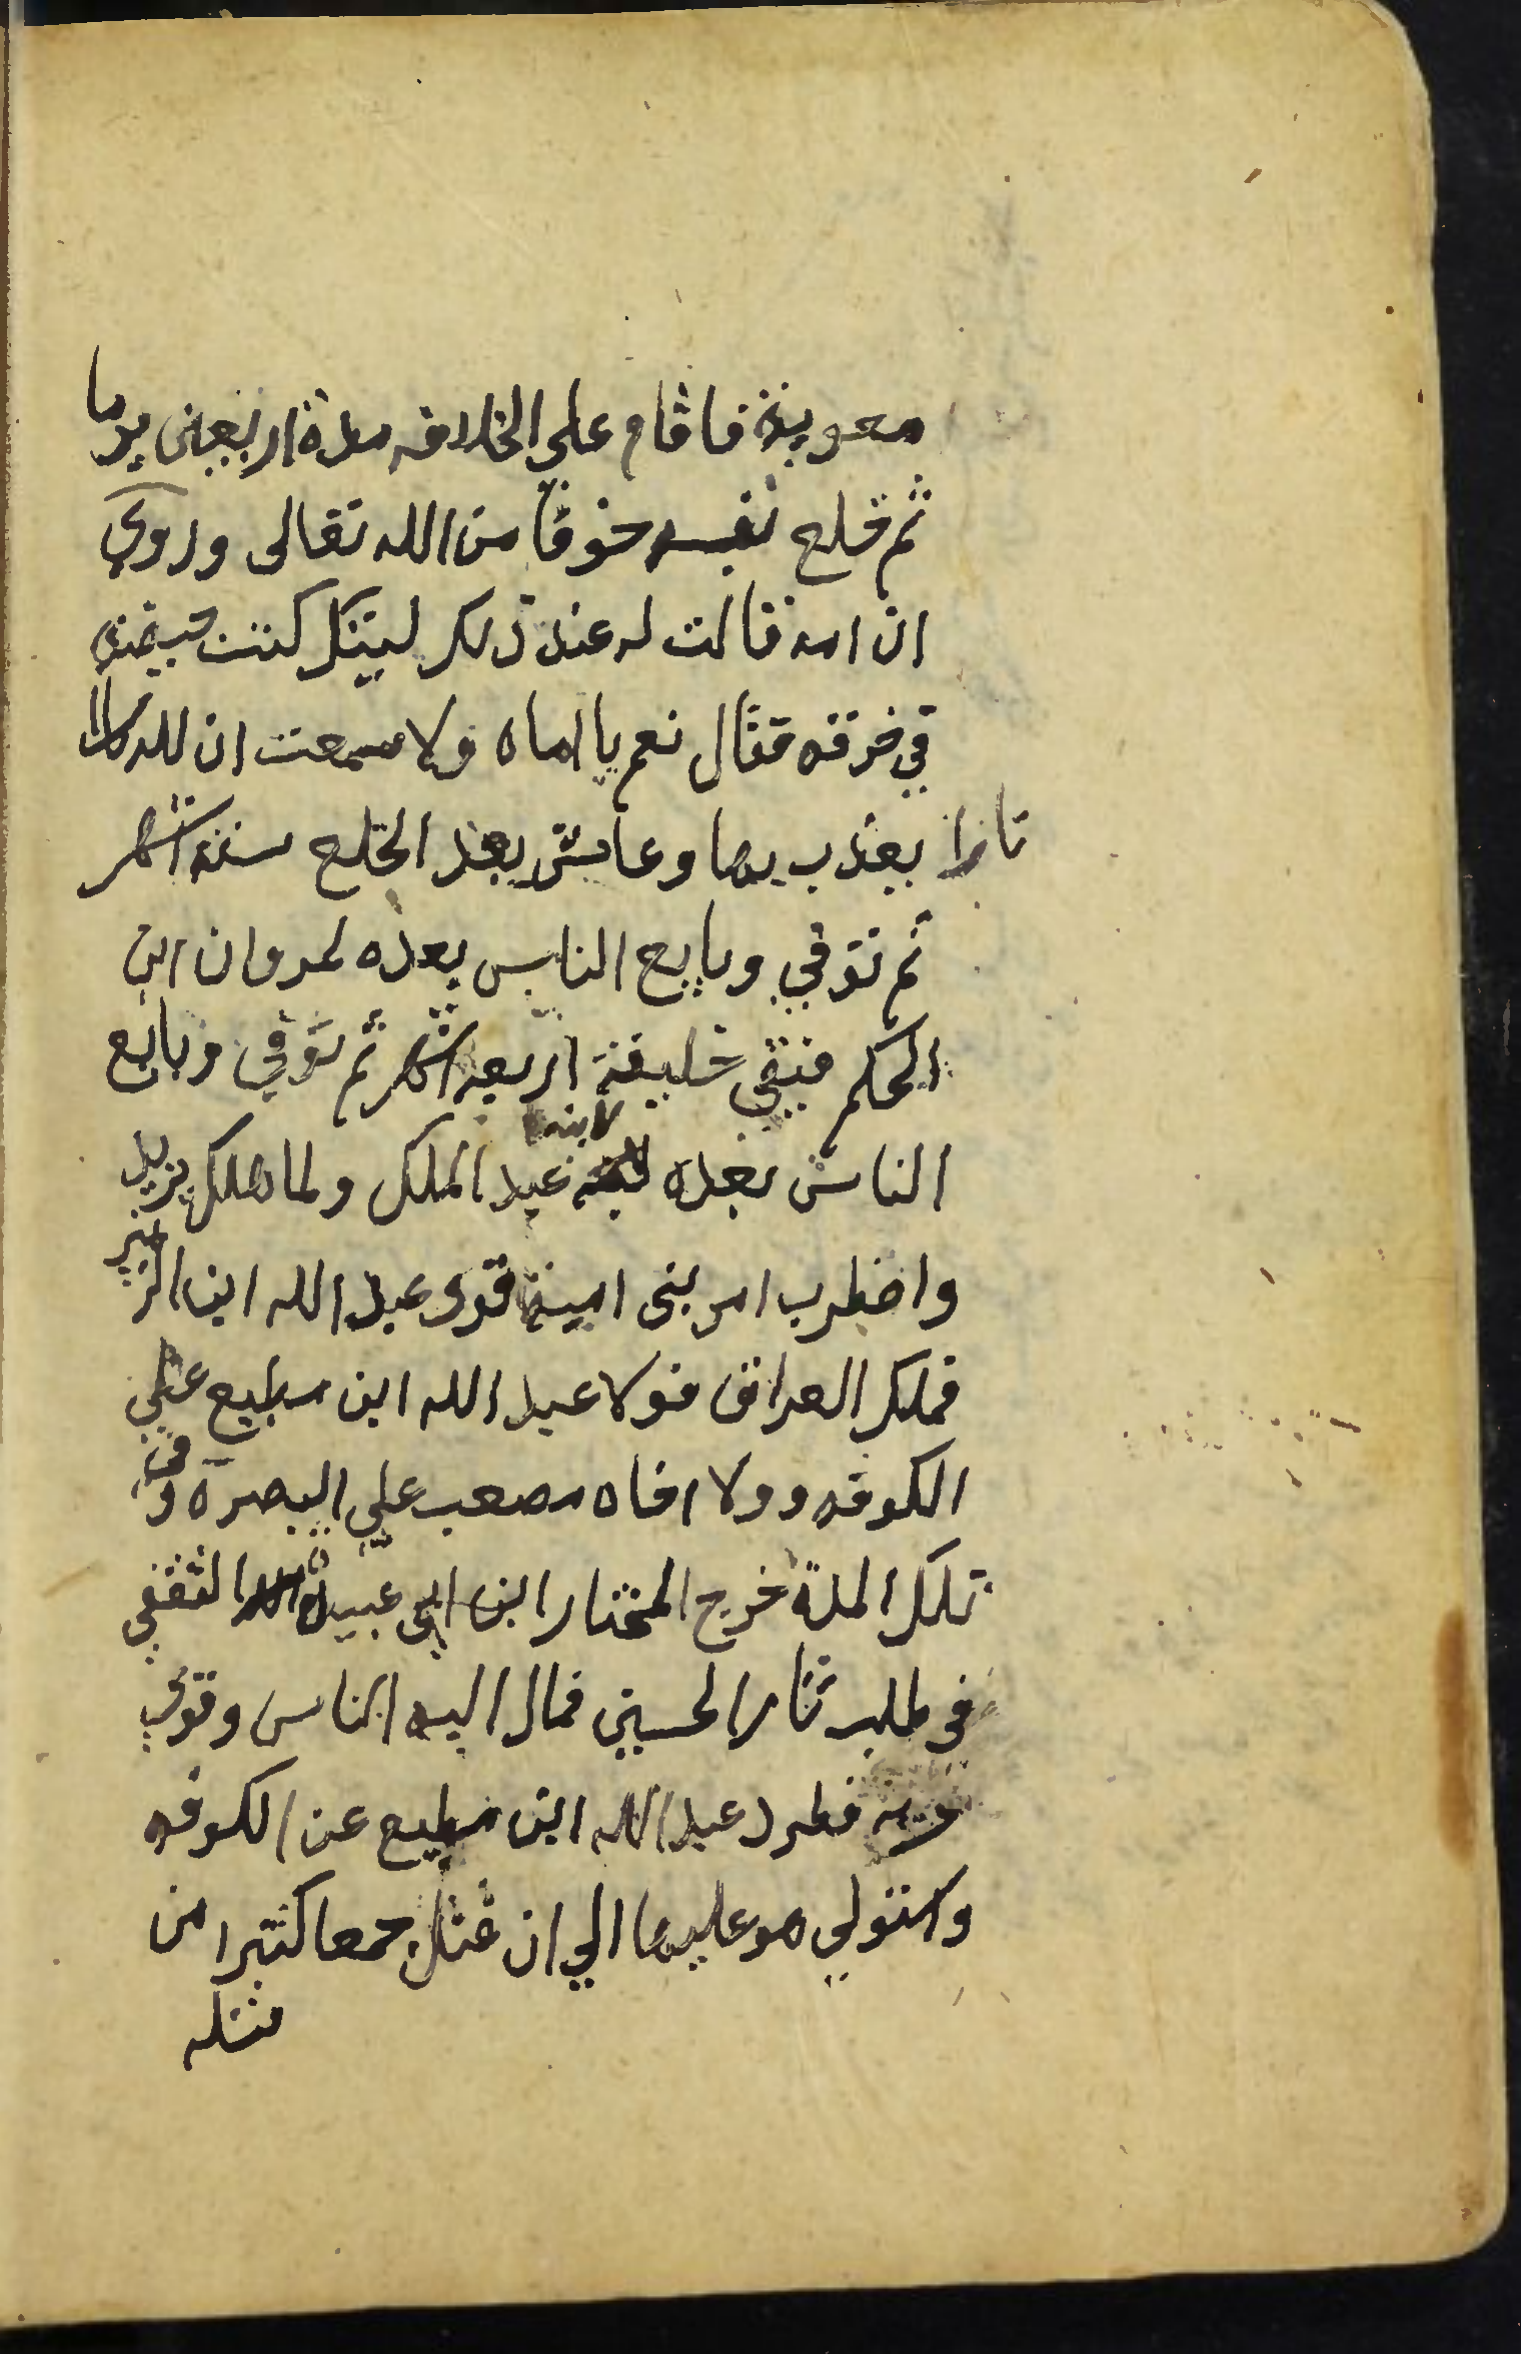 معوية فاقام علي الخلافه مدة اربعين يوما
ثم خلع نفسه خوفا من الله تعالى وروي
ان امه قالت له عند ذلك ليتك كنت حيضة
في خرقه فقال نعم يا اماه ولا سمعت ان لله
نارا يعذب بها وعاش بعد الخلع ستة اشهر
ثم توفي وبايع الناس بعده لمروان ابن
الحكم فبقي خليفة اربعه اشهر ثم توفي وبايع
الناس بعده لابنه عبد الملك ولما هلك يزيد
واضطرب امر بني امية قوى عبد الله ابن الزبير
فملك العراق فولا عبد الله ابن مطيع علي
الكوفه وولا اخاه مصعب علي البصرة وفي
تلك المدة خرج المختار ابن ابي عبيدة الثقفي
في طلب ثار الحسين فمال اليه الناس وقوي
فطرد عبد الله ابن مطيع عن الكوفه
واستولي هو عليها الي ان قتل جمعا كثيرا من
قتله